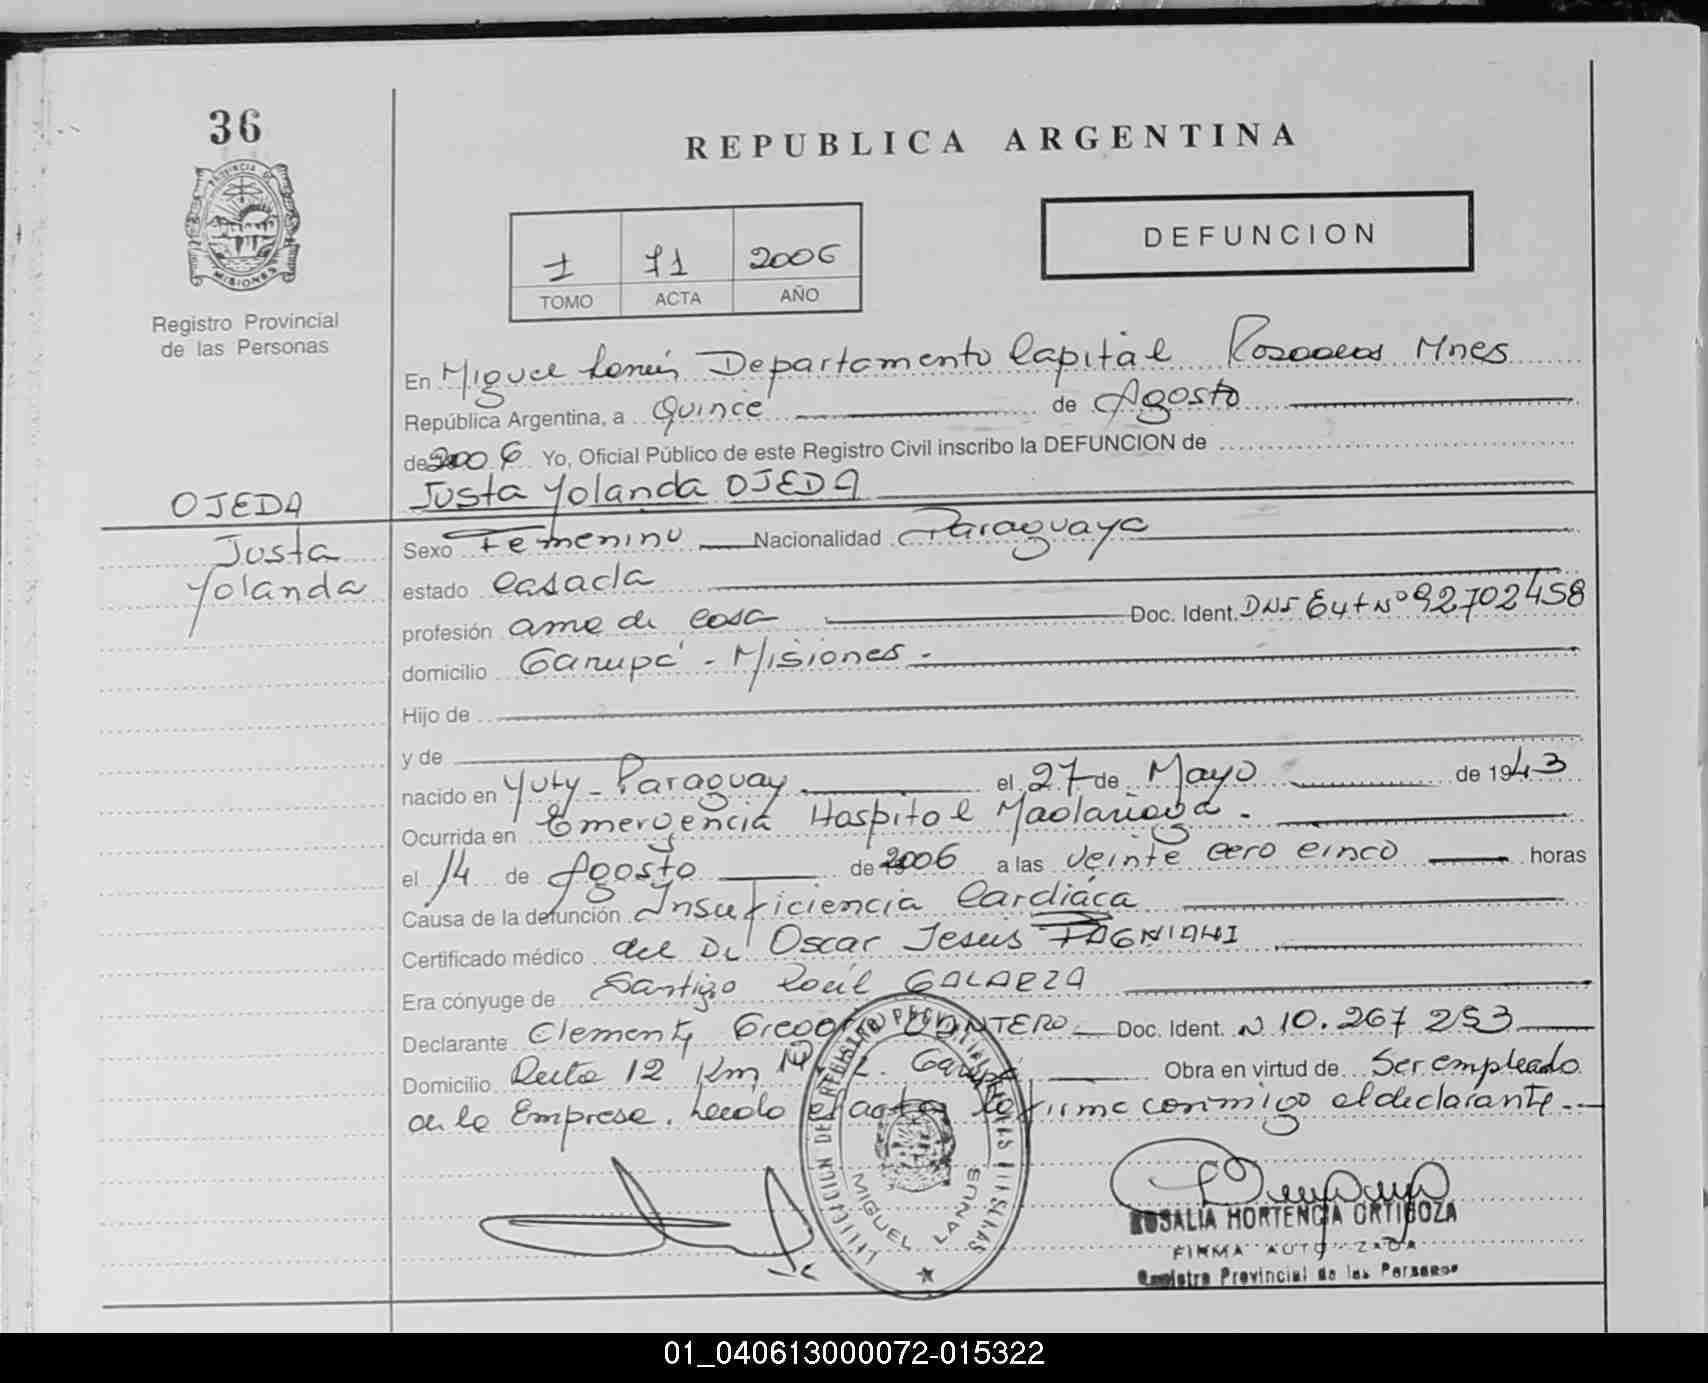 36
REPUBLICA ARGENTINA
PROVINCIA DE
MISIONES
Registro Provincial
de las Personas
1 71 2006
TOMO ACTA AÑO
DEFUNCION
En Miguel Lanús Departamento Capital Posadas Mnes
República Argentina, a Quince de Agosto
de 2006 Yo, Oficial Público de este Registro Civil inscribo la DEFUNCION de
OJEDA
Justa Yolanda
Justa Yolanda OJEDA
Sexo Femenino Nacionalidad Paraguaya
estado casada
profesión ama de casa Doc. Ident. DNI Ext Nº 92702458
domicilio Garupá - Misiones -
Hijo de
y de
nacido en Yuty - Paraguay el 27 de Mayo de 1943
Ocurrida en Emergencia Hospital Madariaga -
el 14 de Agosto de 2006 a las veinte cero cinco horas
Causa de la defunción Insuficiencia Cardiáca
Certificado médico del Dr Oscar Jesus
Era cónyuge de Raúl GALARZA
Declarante Doc. Ident. N 10.267 253
Domicilio Ruta 12 Km Garupá Obra en virtud de Ser empleado
de la Empresa. Leido el acta la firma conmigo el declarante.-
MIGUEL LANUS
ROSALIA HORTENCIA ORTIGOZA
FIRMA AUTORIZADA
Registro Provincial de las Personas
01_040613000072-015322